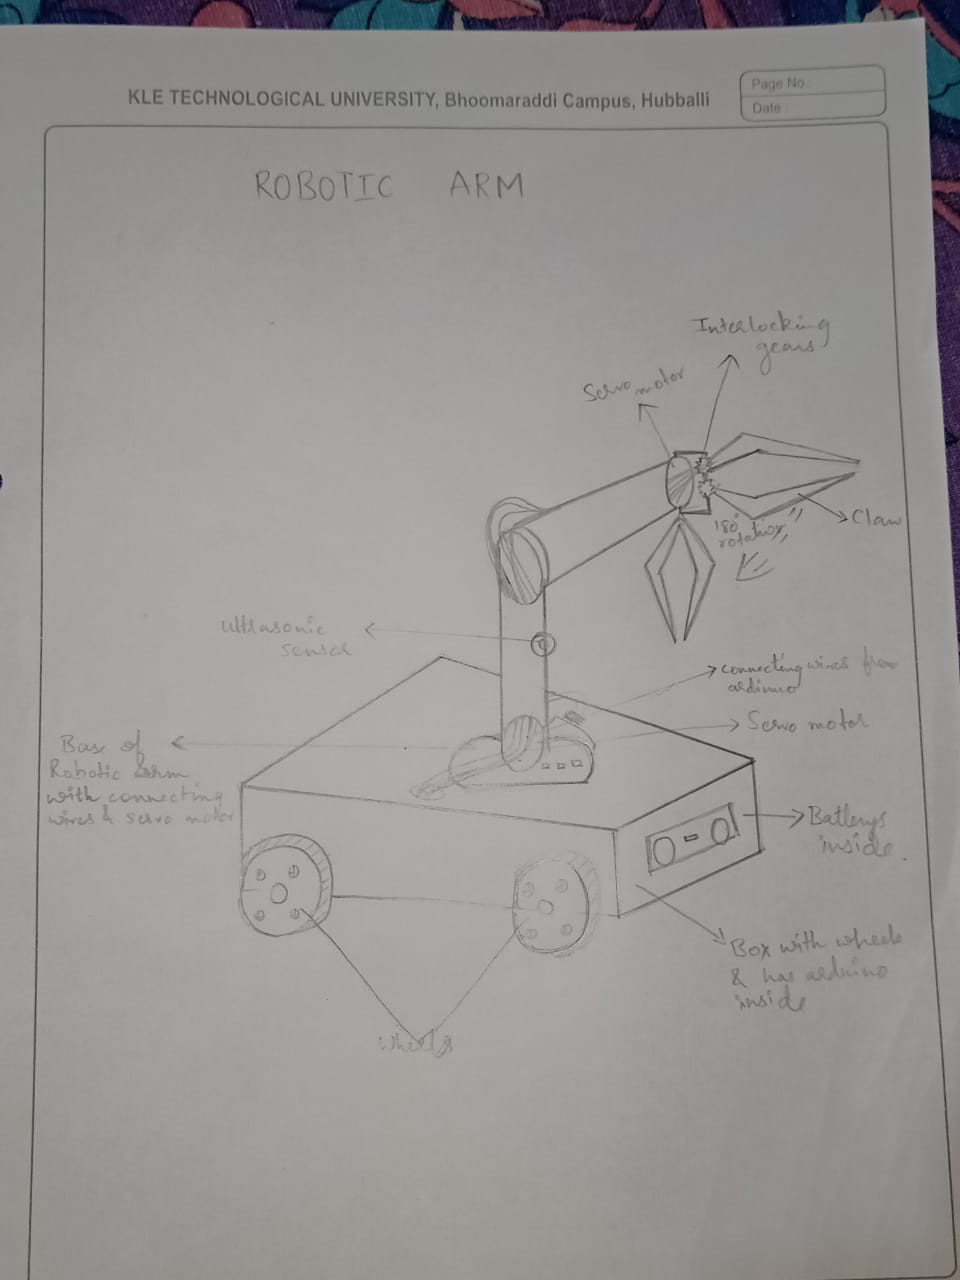 KLE TECHNOLOGICAL UNIVERSITY, Bhoomaraddi Campus, Hubballi
Page No.:
Date
ROBOTIC ARM
Interlocking
gears
Servo motor
Claw
180°
rotation
Ultrasonic
sensor
connecting wires from
ardinuo
Servo motor
Base of
Robotic Arm
with connecting
wires & servo motor
Batterys
inside.
Box with wheels
& has arduino
inside
Wheels